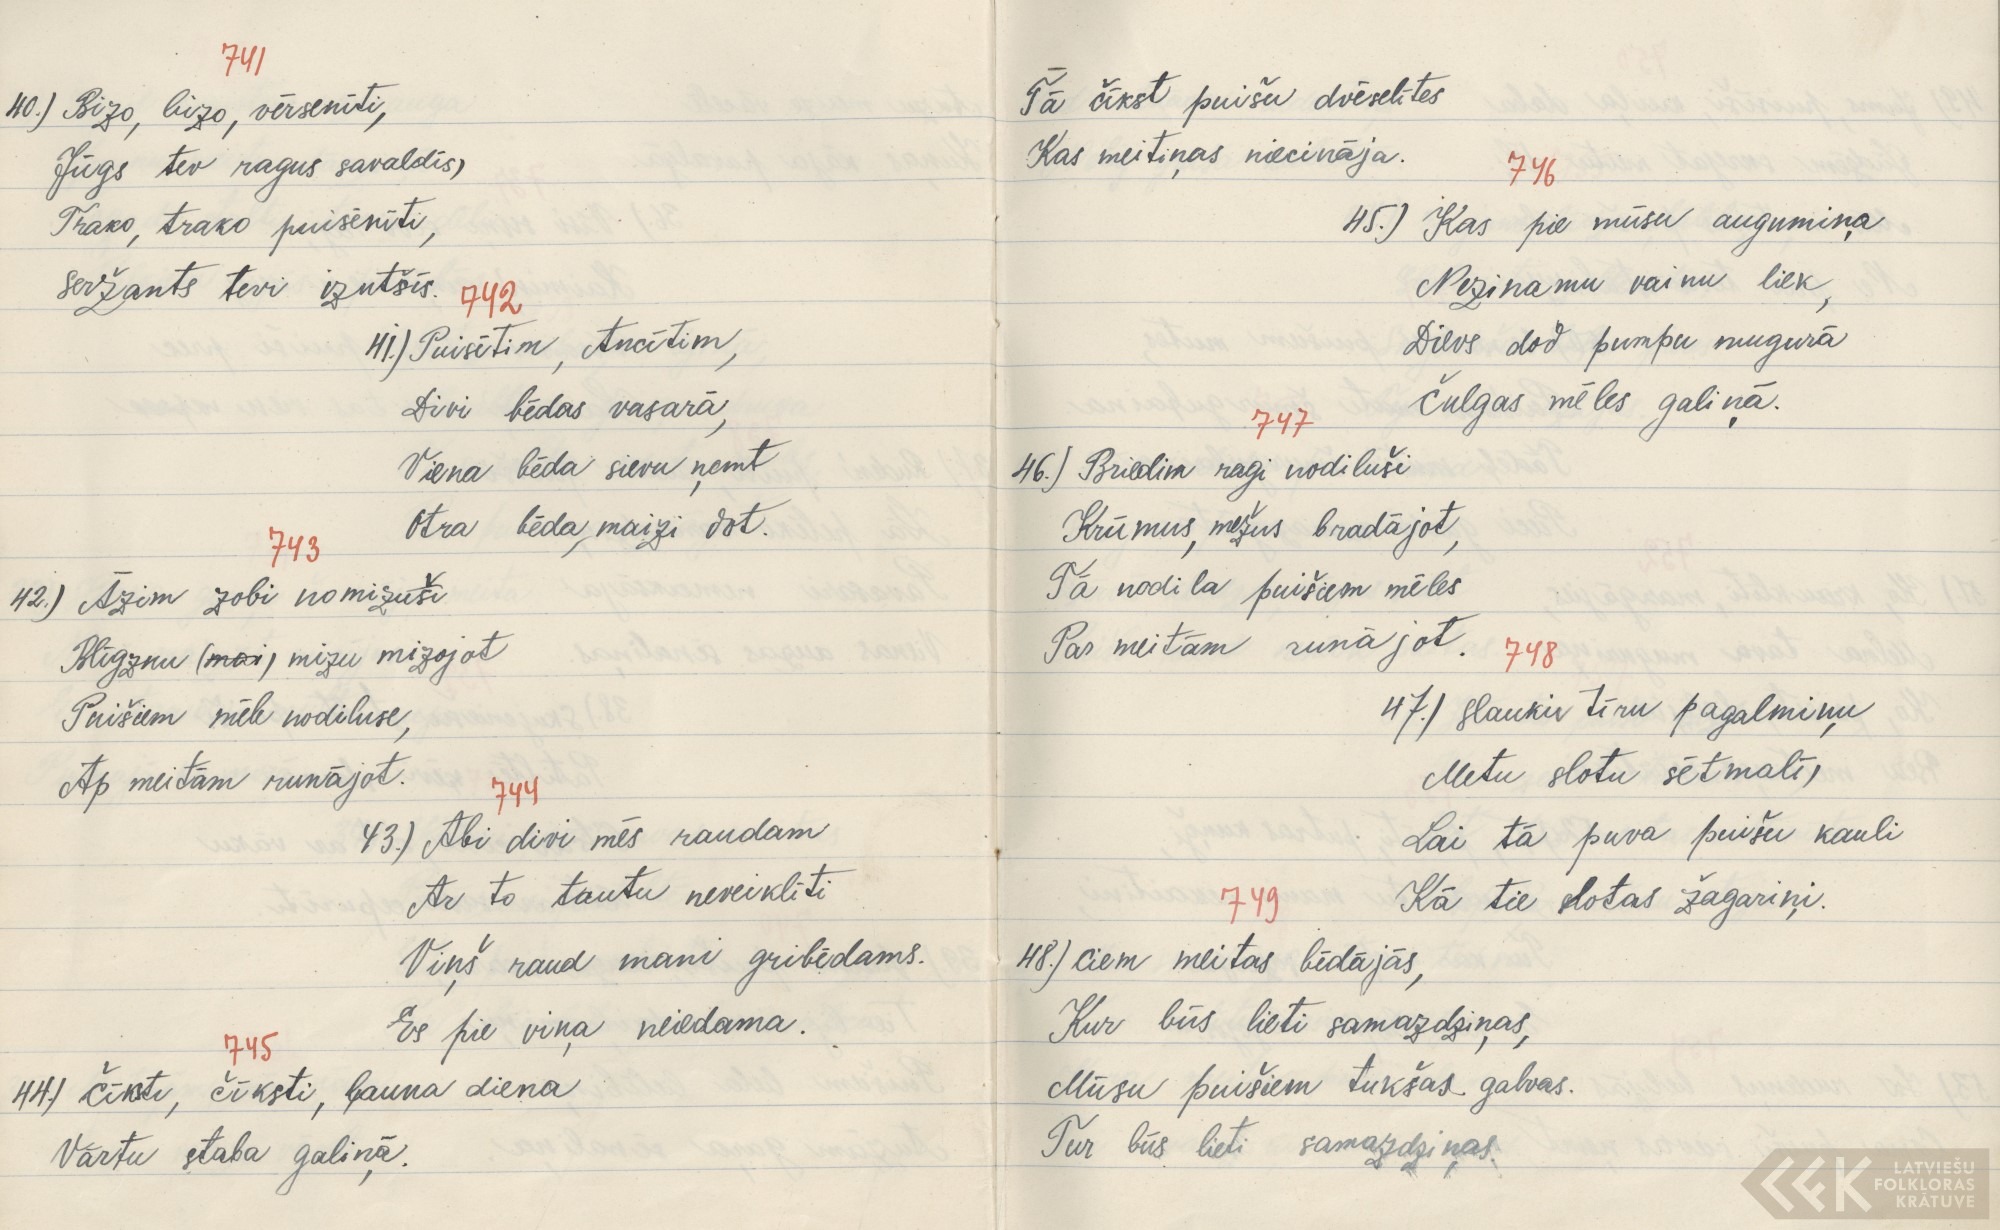 741
40.) Bizo, bizo, vērsenīti,
Jūgs tev ragus savaldīs,
Trako, trako puisēnīti,
Seržants tevi izutšīs.
742
41.) Puisītim, Ancītim,
Divi bēdas vasarā,
Viena bēda sievu ņemt
Otra bēda, maizi dot.
743
42.) Āzim zobi nomizuši
Blīgznu (mai) mizu mizojot
Puišiem mēle nodiluse,
Ap meitām runājot.
744
43.) Abi divi mēs raudam
Ar to tautu neveiklīti
Viņš raud mani gribēdams.
Es pie viņa neiedama.
745
44.) Čīksti, čīksti, ļauna diena
Vārtu staba galiņā.
Tā čīkst puišu dvēselītes
Kas meitiņas niecināja.
746
45.) Kas pie mūsu augumiņa
Nezinamu vainu liek,
Dievs dod pumpu mugurā
Čulgas mēles galiņā.
747
46.) Briedim ragi nodiluši
Krūmus, mežus bradājot,
Tā nodila puišiem mēles
Par meitām runājot.
748
47.) Slauku tīru pagalmiņu
Metu slotu sētmalī,
Lai tā puva puišu kauli
Kā tie slotas žagariņi.
749
48.) Ciem meitas bēdājās,
Kur būs lieti samazdziņas,
Mūsu puišiem tukšas galvas.
Tur būs lieti samazdziņas.
LATVIEŠU
FOLKLORAS
KRĀTUVE